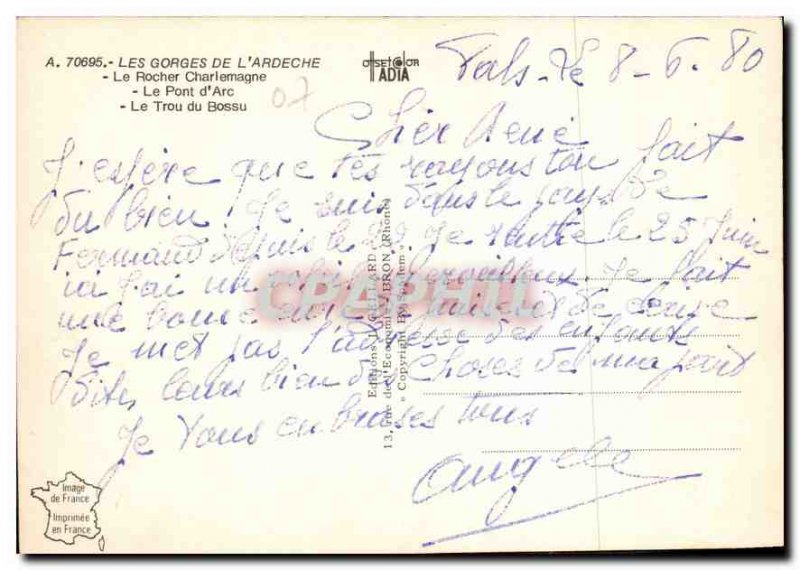 A. 70695.- LES GORGES DE L'ARDECHE
- Le Rocher Charlemagne
- Le Pont d'Arc
- Le Trou du Bossu
07
OFFSETCOLOR
ADIA
Vals - Le 8-6.80
Cher René
J'espère que tes rayons ton fait
du bien, Je suis dans le pays de
Fernand depuis le 29 Je rentre le 25 Juin
ici j'ai un merveilleux Je fait
une bonne cure
Je met pas l'adresse des enfants
dites leurs bien des choses de ma part
Je Vous embrasses tous
Angele
Editions
13, rue de l'Economie - BRON (Rhône)
« Copyright by
CPAPHIL
Image
de France
Imprimée
en France